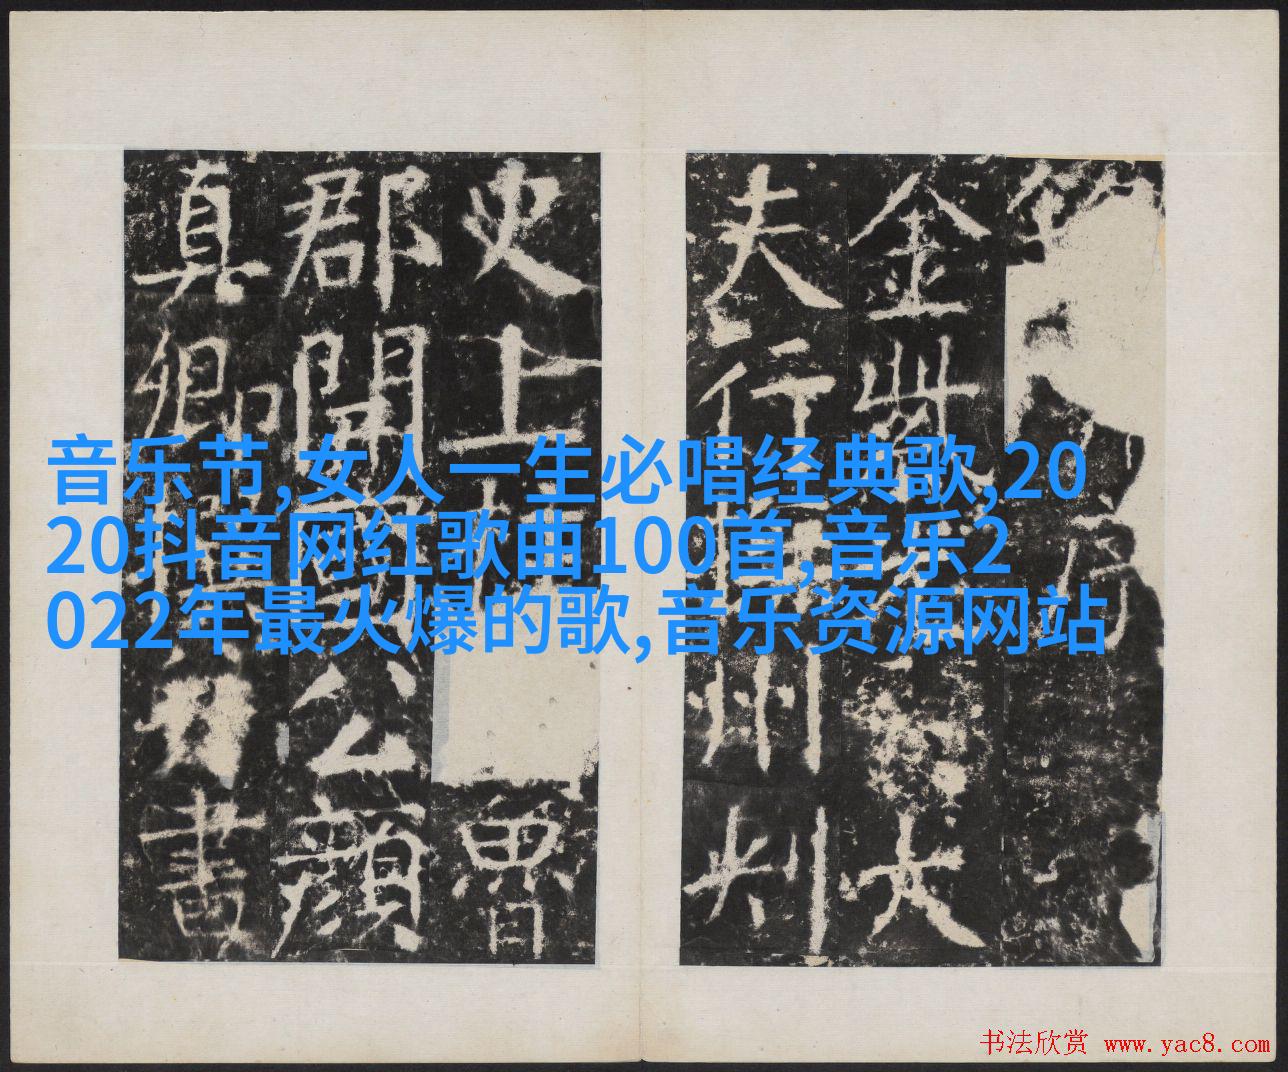 金紫大
夫行州刺
史上柱魯
郡開公顏
真卿書
音乐节,女人一生必唱经典歌,20
20抖音网红歌曲100首,音乐2
022年最火爆的歌,音乐资源网站
书法欣赏 www.yac8.com